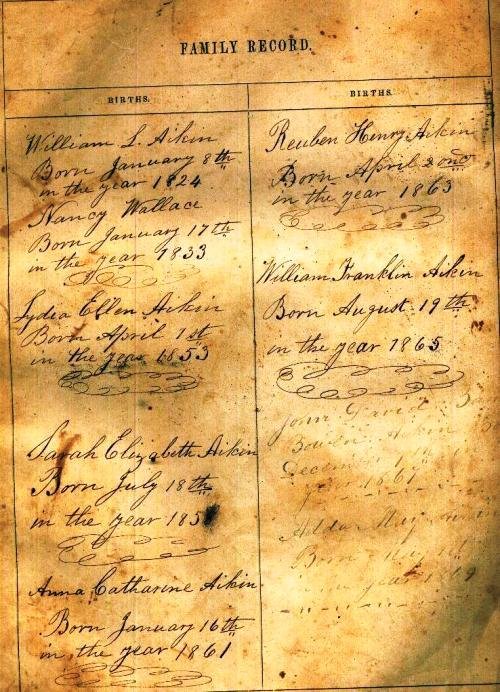 FAMILY RECORD.
BIRTHS.
William L. Aikin
Born January 8th
in the year 1824
Nancy Wallace
Born January 17th
in the year 1833
Lydia Ellen Aikin
Born April 1st
in the year 1853
Sarah Elizabeth Aikin
Born July 18th
in the year 185
Anna Catharine Aikin
Born January 16th
in the year 1861
BIRTHS.
Reuben Henry Aikin
Born April 2ond
in the year 1863
William Franklin Aikin
Born August 19th
in the year 1865
John David
Aikin
year
Born
year